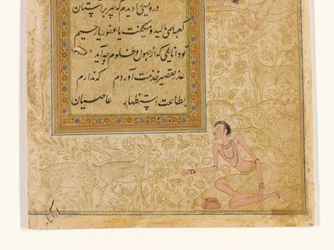 درویشی را دیدم که سر بر آستان
کعبه همی مالید و میگفت یا غفور یا رحیم
تو دانایی که از جهول و ظلوم چه آید
عذر تقصیر خدمت آوردم که ندارم
بطاعت استظهار عاصیان